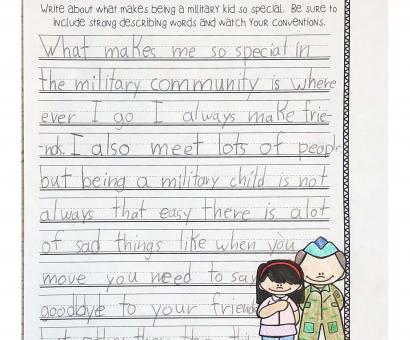 Write about what makes being a military kid so special. Be sure to
include strong describing words and watch your conventions.
What makes me so special in
the military community is where
ever I go I always make frie-
-nds. I also meet lots of people
but being a military child is not
always that easy there is alot
of sad things like when you
move you need to say
goodbye to your friends